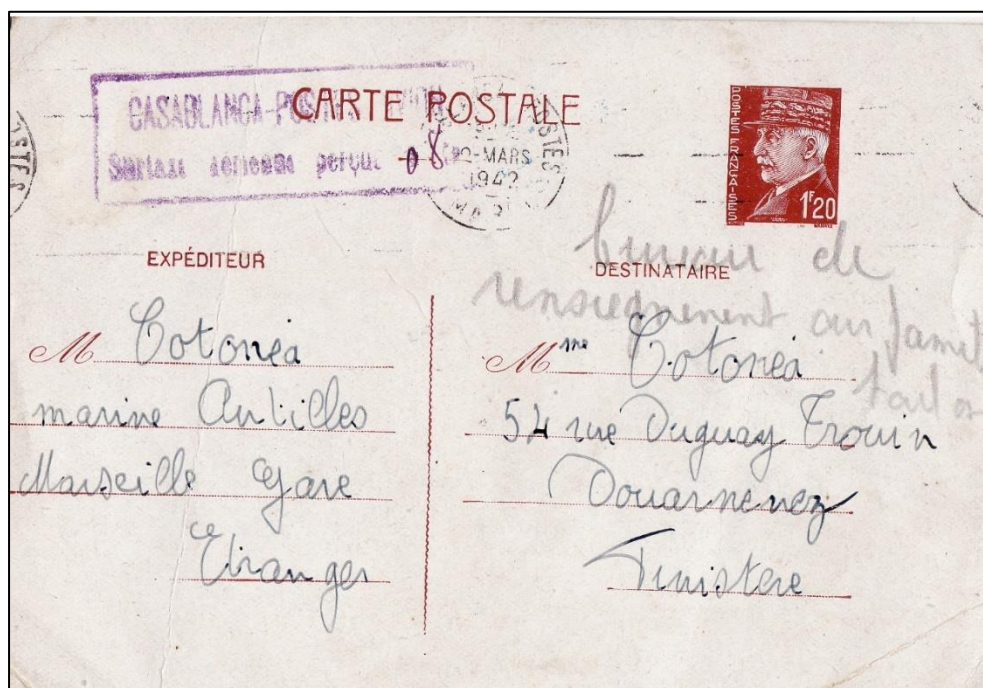 CASABLANCA-POSTE
Surtaxe aérienne perçue 08
CARTE POSTALE
POSTES
2-MARS
1942
MAR
STES
POSTES FRANÇAISES
1F20
bureau de
renseignement aux famil
toulon
EXPÉDITEUR
M Cotonéa
marine Antilles
Marseille Gare
Etranger
DESTINATAIRE
Mme Cotonéa
54 rue Duguay Trouin
Douarnenez
Finistere